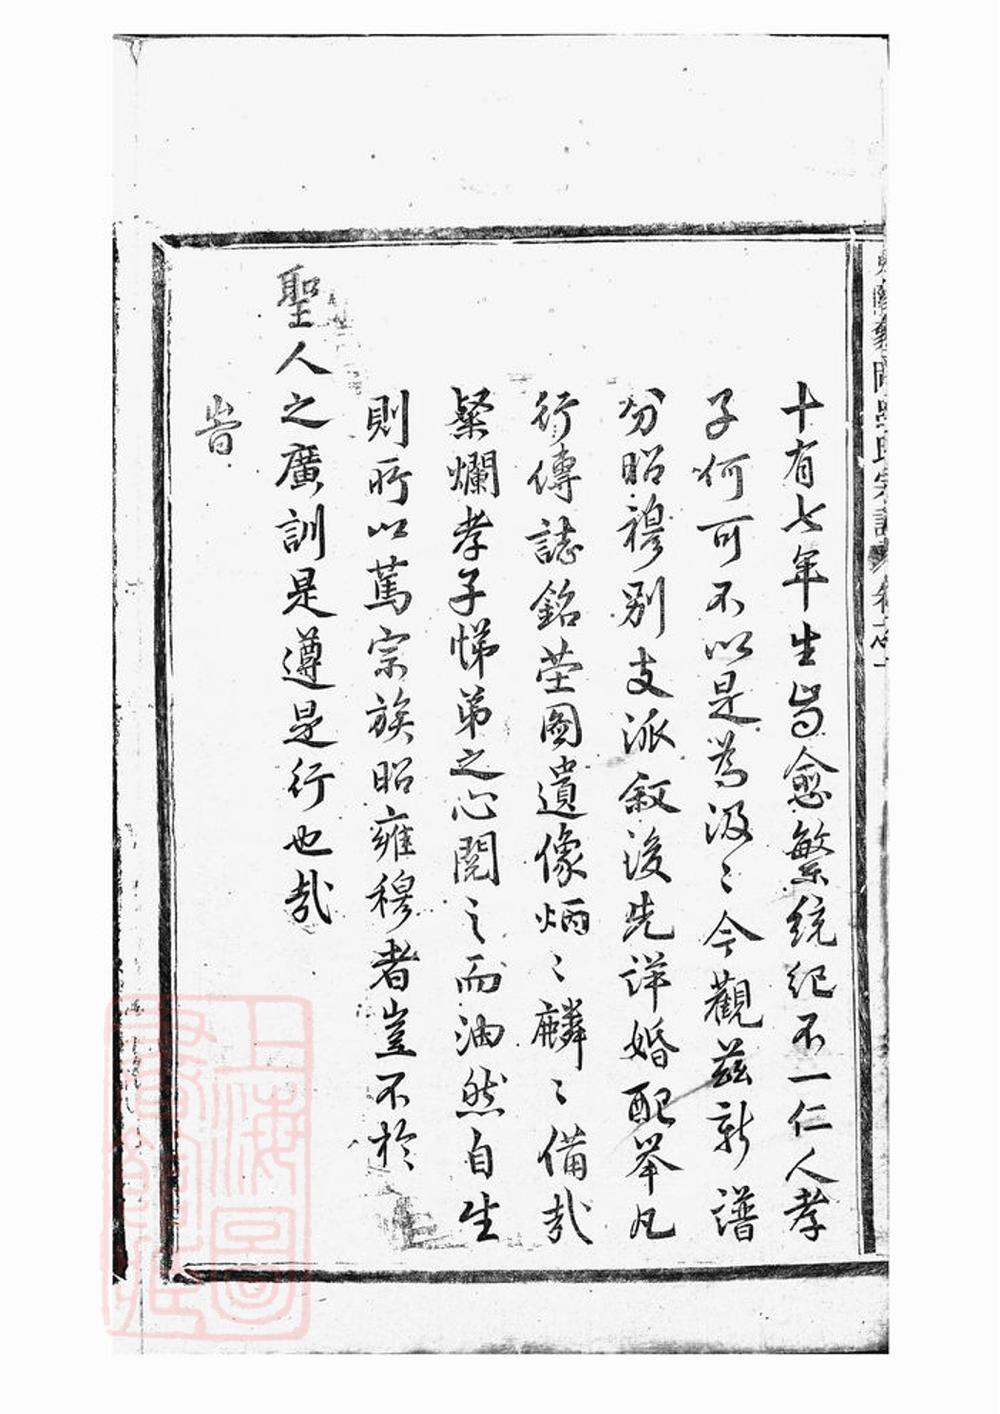 十有七年生齒愈繁統紀不一仁人孝
子何可不以是為汲〻今觀茲新譜
分昭穆別支派敘後先詳婚配舉凡
行傳誌銘塋圖遺像炳〻麟〻備哉
粲爛孝子悌弟之心閱之而油然自生
則所以篤宗族昭雍穆者豈不於
聖人之廣訓是遵是行也哉
旹
上海圖